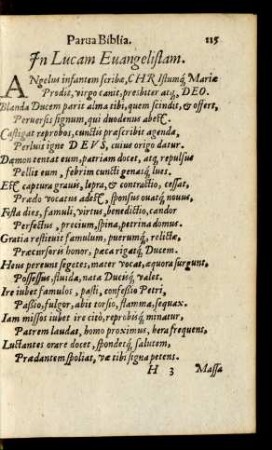 Parua Biblia. 115
In Lucam Euangelistam.
ANgelus infantem scribæ, CHRIstumq́; Mariæ
Prodit, virgo canit, presbiter atq́; DEO.
Blanda Ducem parit alma tibi, quem scindit, & offert,
Peruersis signum, qui duodenus abest.
Castigat reprobos, cunctis præscribit agenda,
Perluis igne DEVS, cuius origo datur.
Dæmon tentat eum, patriam docet, atq́; repulsus
Pellit eum, febrim cunctigenasq́; lues.
Est captura grauis, lepra, & contractio, cessat,
Prædo vocatus adest, sponsus ouatq́; nouus,
Festa dies, famuli, virtus, benedictio, candor
Perfectus, precium, spina, petrina domus.
Gratia restituit famulum, puerumq́; relictæ,
Præcursoris honor, pæca rigatq́; Ducem.
Heus pereunt segetes, mater vocat, æquora surgunt,
Possessus, fluida, nata Duciq́; valet.
Ire iubet famulos, pasti, confessio Petri,
Passio, fulgor, abit torsio, flamma, sequax.
Iam missos iubet ire citò, reprobisq́; minatur,
Patrem laudat, homo proximus, hera frequens,
Luctantes orare docet, spondetq́; salutem,
Prædantem spoliat, væ tibi signa petens.
H 3 Massa